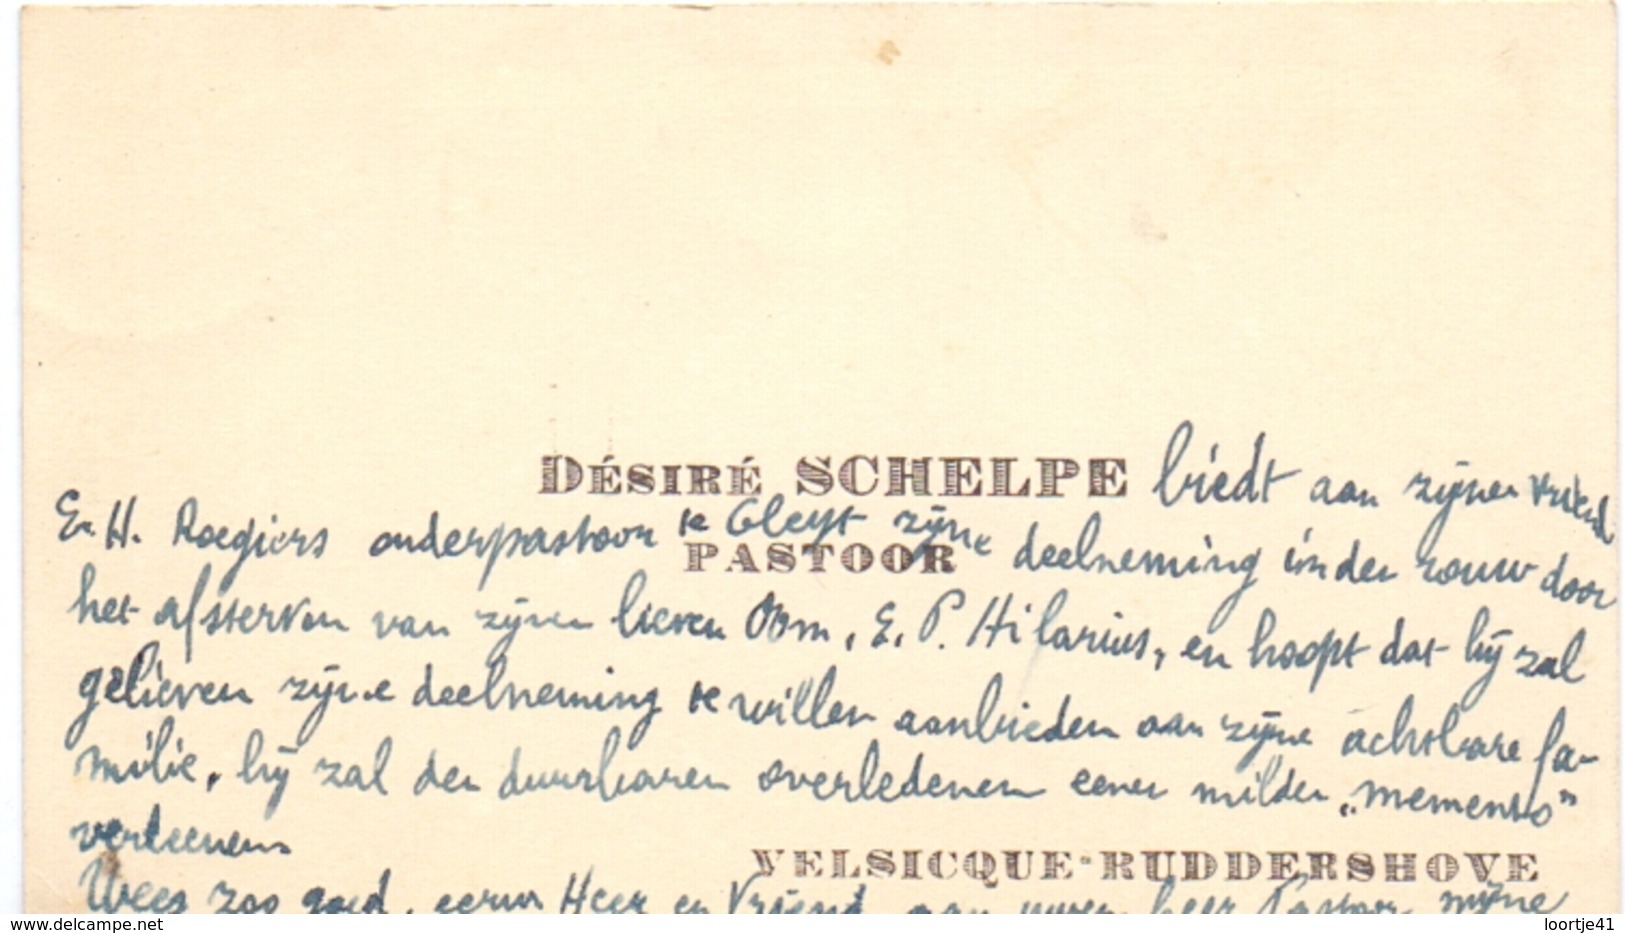 DÉSIRÉ SCHELPE biedt aan zijnen vriend
E. H. Roegiers onderpastoor te Cleyt zijne
PASTOOR
deelneming in den rouw door
het afsterven van zijnen lieven Oom, E. P. Hilarius, en hoopt dat hij zal
gelieven zijne deelneming te willen aanbieden aan zijne achtbare fa-
milie, hij zal den duurbaren overledenen eenen milden „memento"
verleenen.
VELSICQUE-RUDDERSHOVE
Wees zoo goed, eerw Heer en Vriend, aan uwen heer Pastoor mijne
www.delcampe.net
loortje41